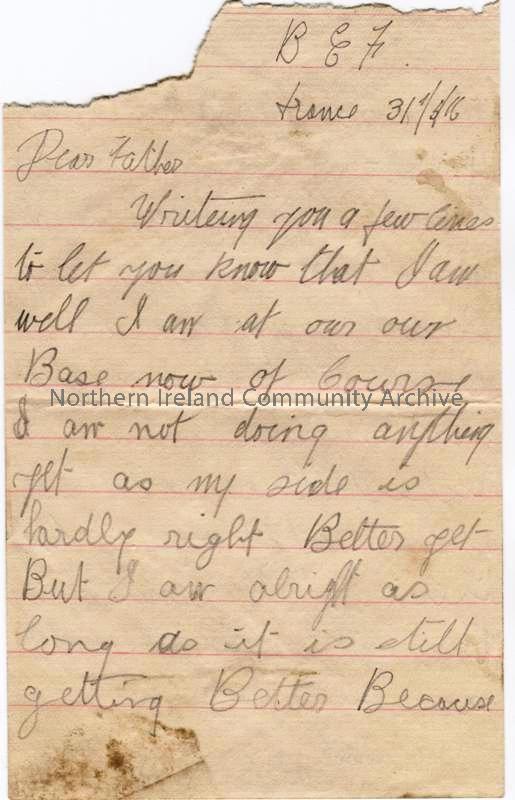 B E F.
France 31/5/16
Dear Father
Writeing you a few lines
to let you know that I am
well I am at our our
Base now of Course
Northern Ireland Community Archive
I am not doing anything
yet as my side is
hardly right Better yet
But I am alright as
long as it is still
getting Better Because